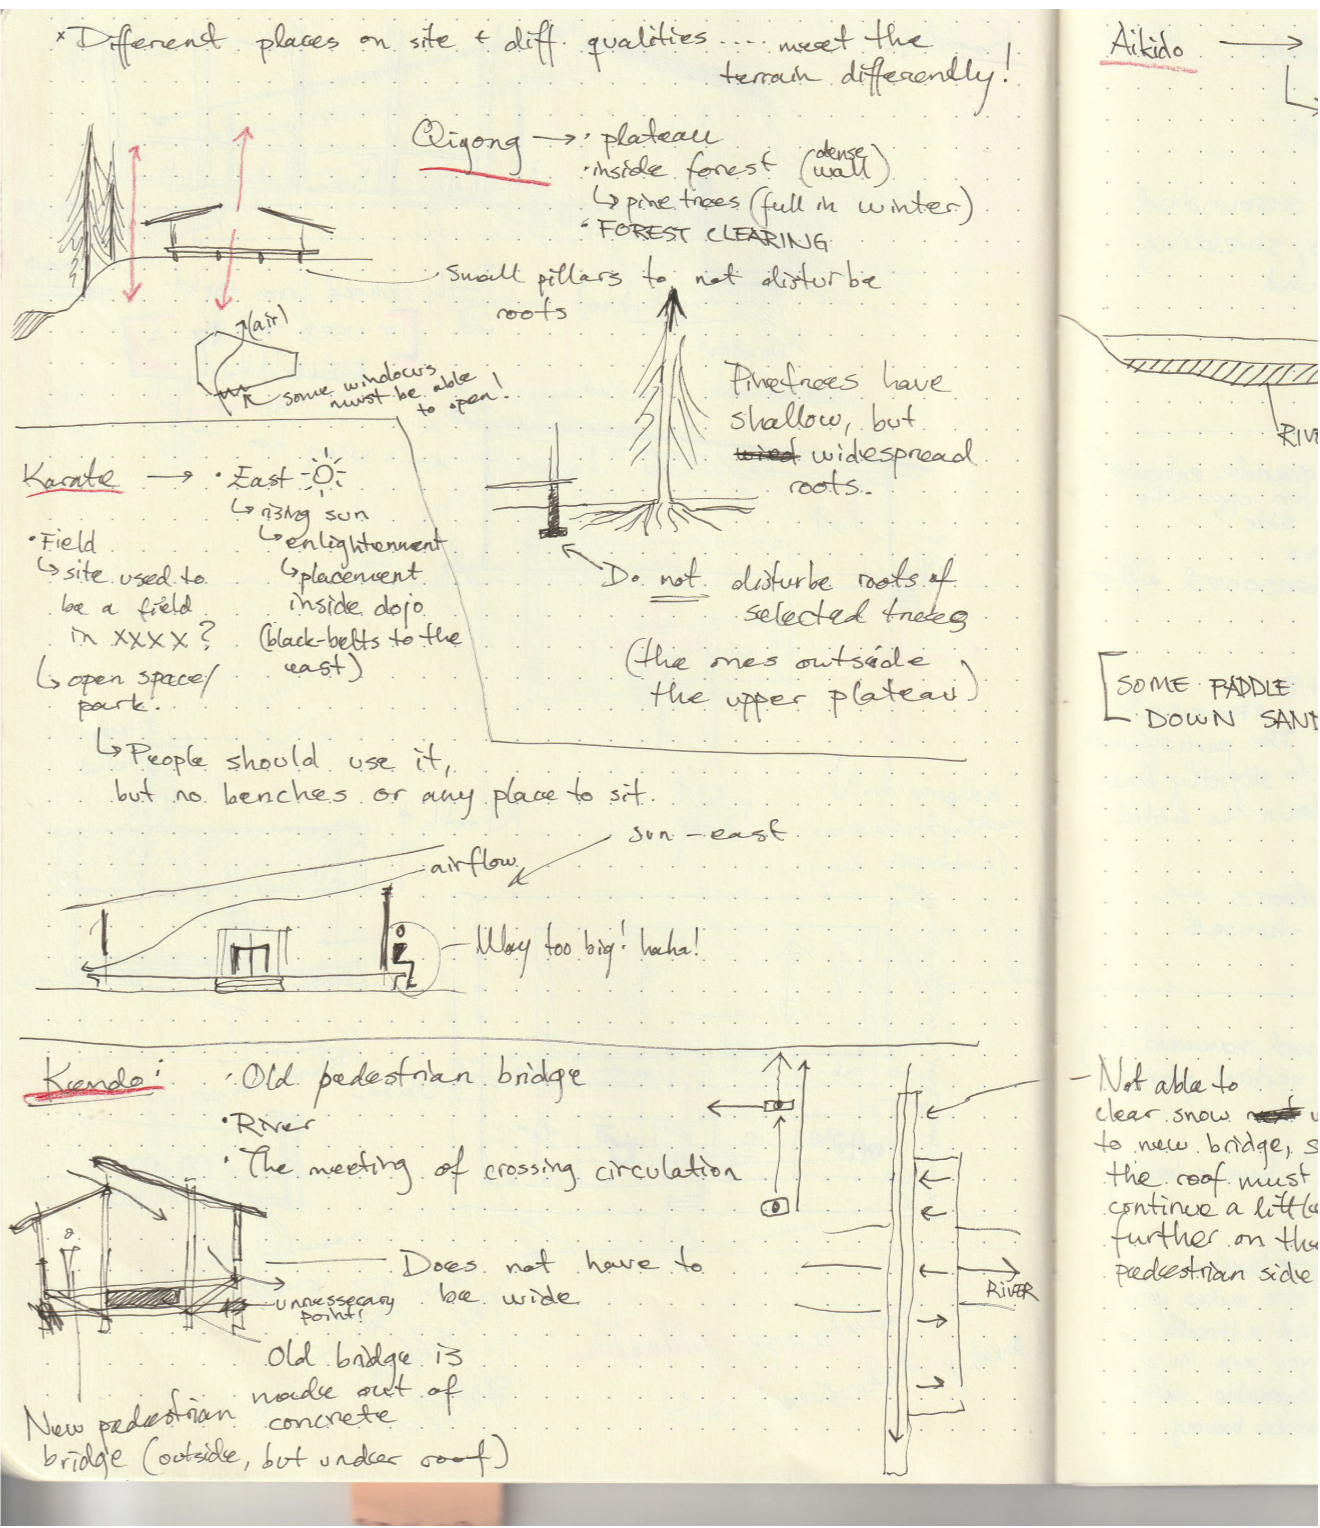 * Different places on site + diff. qualities .... meet the
terrain differently!
Qigong → • plateau
• inside forest (dense wall)
↳ pine trees (full in winter)
• FOREST CLEARING
small pillars to not disturbe
roots
(air)
some windows
must be able
to open!
Pinetrees have
shallow, but
widespread
roots.
Do not disturbe roots of
selected trees
(the ones outside
the upper plateau)
Karate → • East
↳ rising sun
↳ enlightenment
↳ placement
inside dojo
(black-belts to the
east)
• Field
↳ site used to
be a field
in xxxx?
↳ open space/
park.
↳ People should use it,
but no benches or any place to sit.
sun - east
airflow
Way too big! haha!
Kendo:
• Old pedestrian bridge
• River
• The meeting of crossing circulation
Does not have to
be wide
unnessecary
point!
Old bridge is
made out of
concrete
New pedestrian
bridge (outside, but under roof)
RIVER
Aikido →
RIVE
SOME PADDLE
DOWN SAN
Not able to
clear snow
to new bridge, s
the roof must
continue a little
further on the
pedestrian side